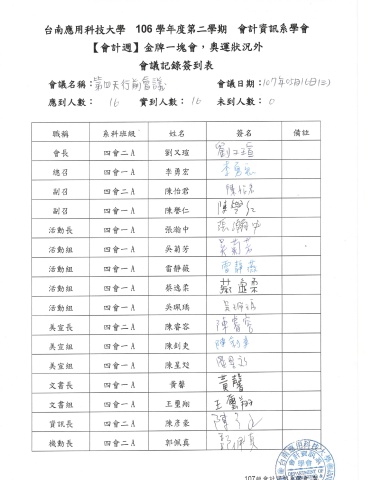 台南應用科技大學 106 學年度第二學期 會計資訊系學會
【會計週】金牌一塊會，奧運狀況外
會議記錄簽到表
會議名稱： 第四次行前會議 會議日期：107年05月16日(三)
應到人數： 16 實到人數： 16 未到人數： 0
職稱 系科班級 姓名 簽名 備註
會長 四會二A 劉又瑄 劉又瑄
總召 四會一A 李勇宏 李勇宏
副召 四會二A 陳怡君 陳怡君
副召 四會一A 陳譽仁 陳譽仁
活動長 四會一A 張瀚中 張瀚中
活動組 四會一A 吳菊芳 吳菊芳
活動組 四會一A 雷靜薇 雷靜薇
活動組 四會一A 蔡逸柔 蔡逸柔
活動組 四會一A 吳珮瑀 吳珮瑀
美宣長 四會一A 陳睿容 陳睿容
美宣組 四會一A 陳劍吏
美宣組 四會一A 陳星彣
文書長 四會一A 黃馨 黃馨
文書組 四會一A 王璽翔 王璽翔
資訊長 四會二A 陳彥豪
機動長 四會二A 郭佩真 郭佩真